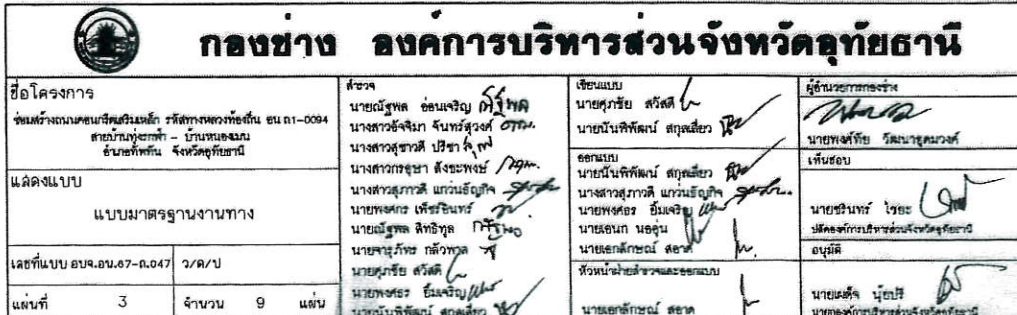 กองช่าง องค์การบริหารส่วนจังหวัดอุทัยธานี
ชื่อโครงการ
ซ่อมสร้างถนนคอนกรีตเสริมเหล็ก รหัสทางหลวงท้องถิ่น อน ถ1-0094
สายบ้านทุ่งนกฟ้า - บ้านหนองแมน
อำเภอทัพทัน จังหวัดอุทัยธานี
แสดงแบบ
แบบมาตรฐานงานทาง
เลขที่แบบ อบจ.อน.67-ถ.047 ว/ด/ป
แผ่นที่ 3 จำนวน 9 แผ่น
สำรวจ
นายณัฐพล อ่อนเจริญ
นางสาวอัจจิมา จันทร์สุวงค์
นางสาวสุชาวดี ปรีชา
นางสาวกรชุษา สังขะพงษ์
นางสาวสุภาวดี แกว่นธัญกิจ
นายพงศกร เพ็ชรอินทร์
นายณัฐพล สิทธิทูล
นายจารุภัทร กลัวพวก
นายศุภชัย สวัสดี
นายพงศธร ยิ้มเจริญ
นายนันพิพัฒน์ สกุลเสี่ยว
เขียนแบบ
นายศุภชัย สวัสดี
นายนันพิพัฒน์ สกุลเสี่ยว
ออกแบบ
นายนันพิพัฒน์ สกุลเสี่ยว
นางสาวสุภาวดี แกว่นธัญกิจ
นายพงศธร ยิ้มเจริญ
นายเอนก นออุ่น
นายเอกลักษณ์ สอาด
หัวหน้าฝ่ายสำรวจและออกแบบ
นายเอกลักษณ์ สอาด
ผู้อำนวยการกองช่าง
นายพงศ์ทัย วัฒนายุคมวงค์
เห็นชอบ
นายชรินทร์ ไชยะ
ปลัดองค์การบริหารส่วนจังหวัดอุทัยธานี
อนุมัติ
นายเผด็จ นุ้ยปรี
นายกองค์การบริหารส่วนจังหวัดอุทัยธานี